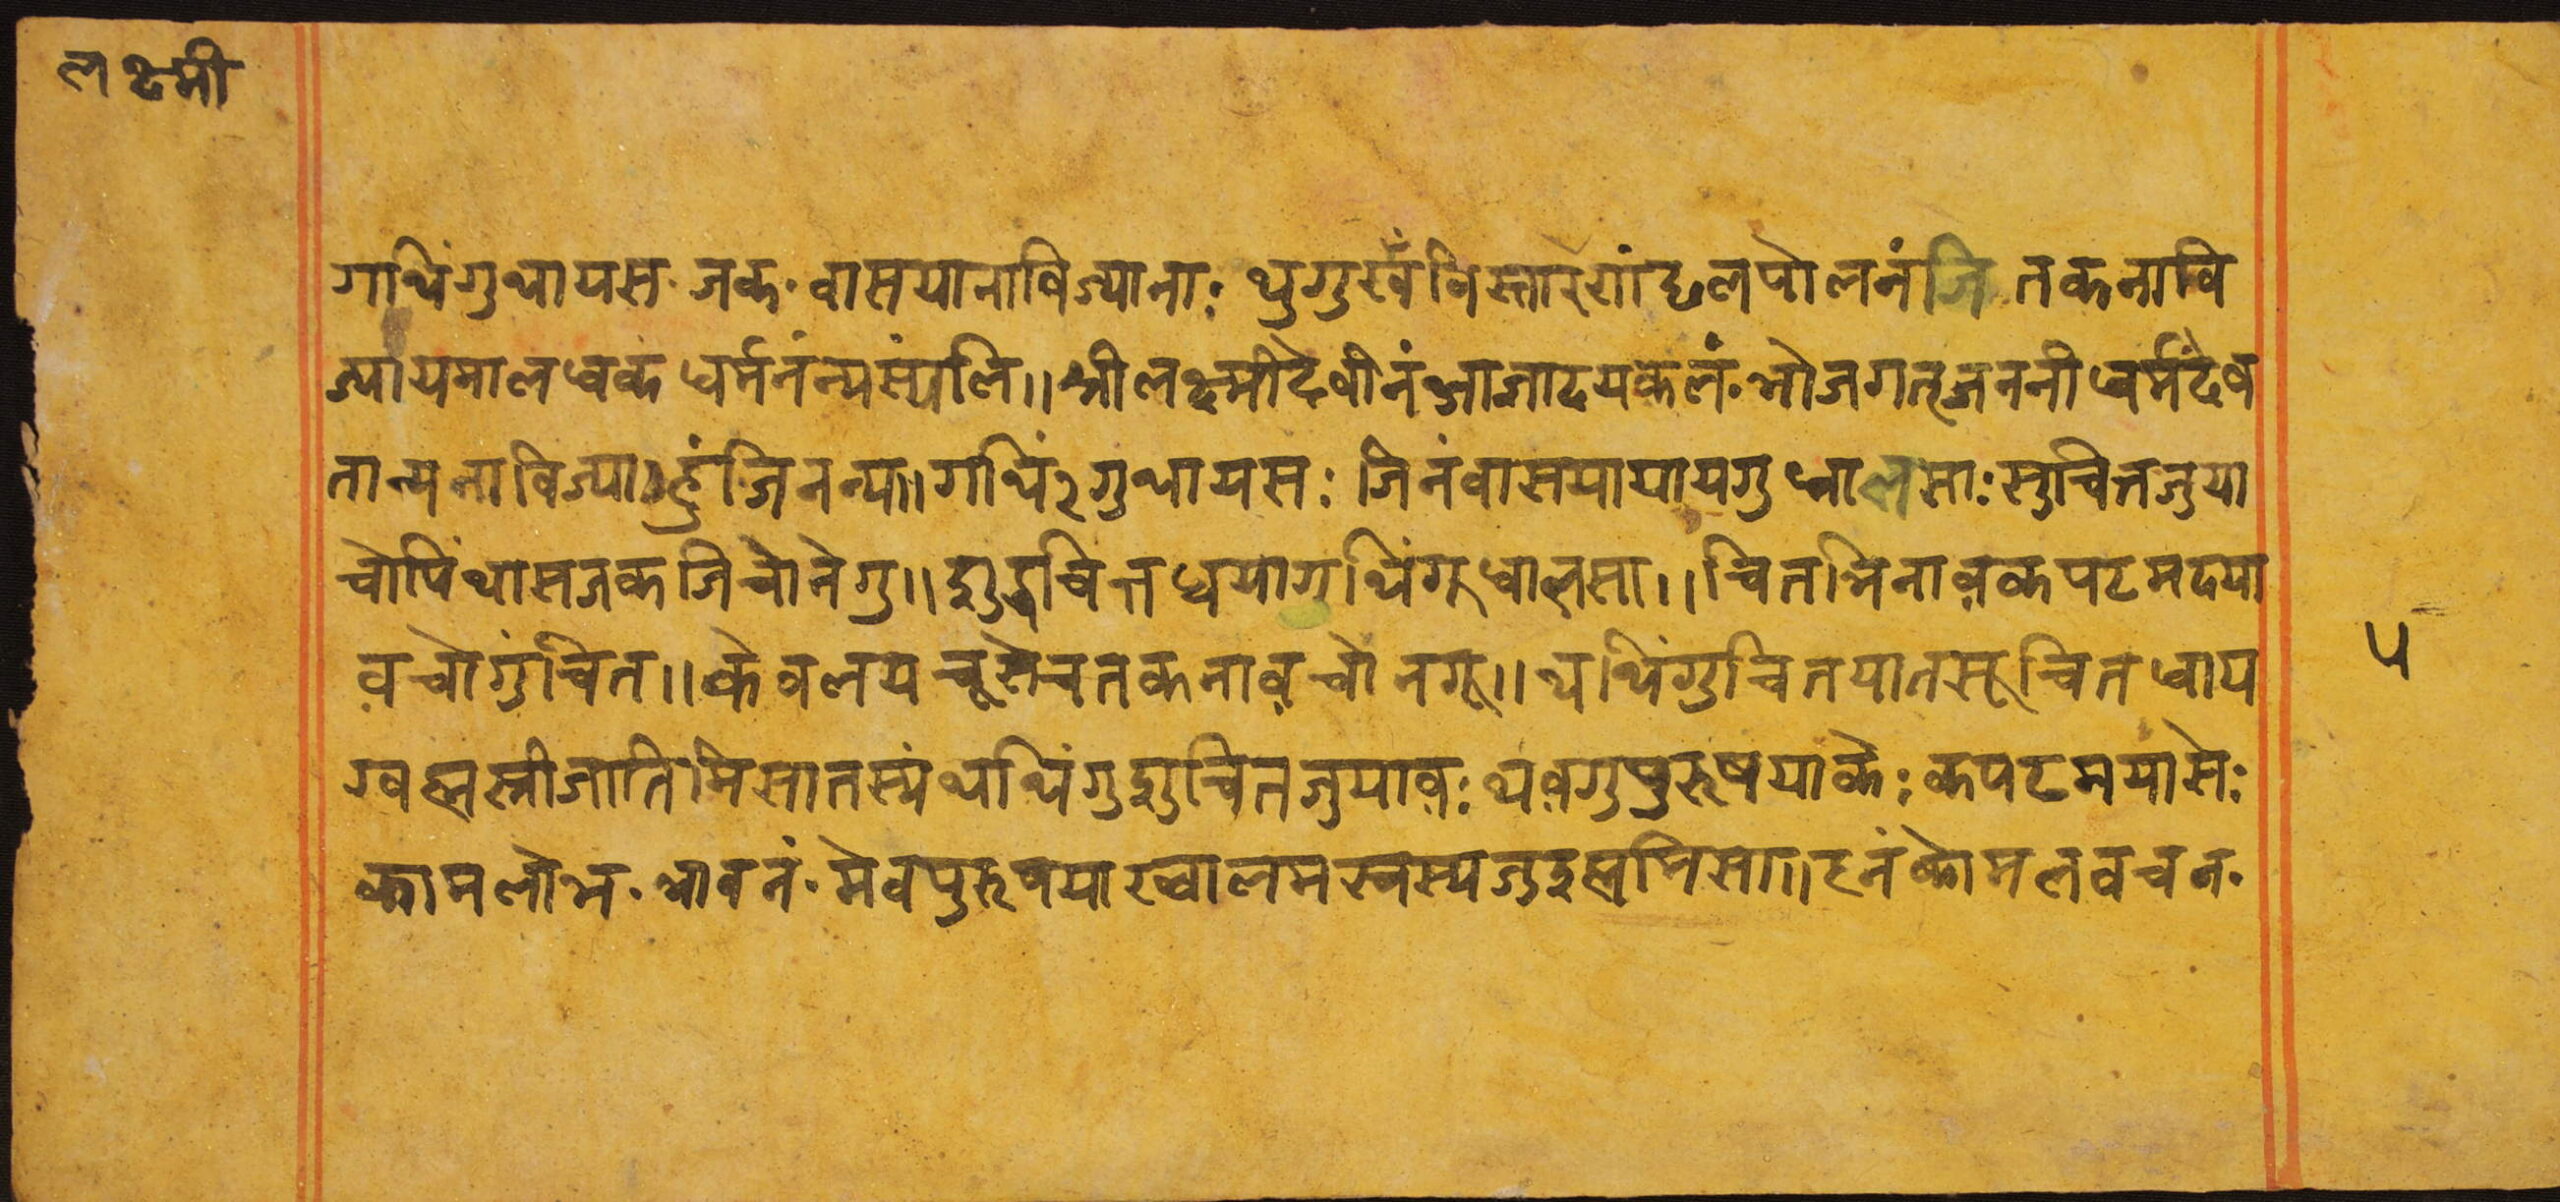 लक्ष्मी
गथिंगुथायस॰ जक॰ वासयानाविज्याना: थुगुखँ विस्तारेणं ह्यलपोलनं जि तकनावि
ज्यायमालधकधर्मनंन्यस्यंलि॥ श्रीलक्ष्मीदेवीनंआज्ञादयकलं॰ भोजगत्जननीधर्मदेव
तान्यनाविज्याहुंजिनन्य॥ गथिं२गुथायस: जिनंवासयायायगुधालसा: सुचित्तजुया
चोपिंथासजकजिचोनेगु॥ सुद्धचित्तधयागथिंगूधालसा॥ चित्तभिनाव़कपटमदया
व़चोगुंचित॥ केवलय चूसेचतकनाव़चोनगू॥ थथिंगुचितयातसूचितधाय
ग्वह्मस्त्रीजातिमिसातस्यंथथिंगुसुचितजुयाव़: थव़गुपुरूषयाके: कपटमयासे:
कामलोभ॰ भावनं॰ मेवपुरूषयाख्वालमस्वस्यजुइह्ममिसा॥ हनंकोमलवचन॰
५